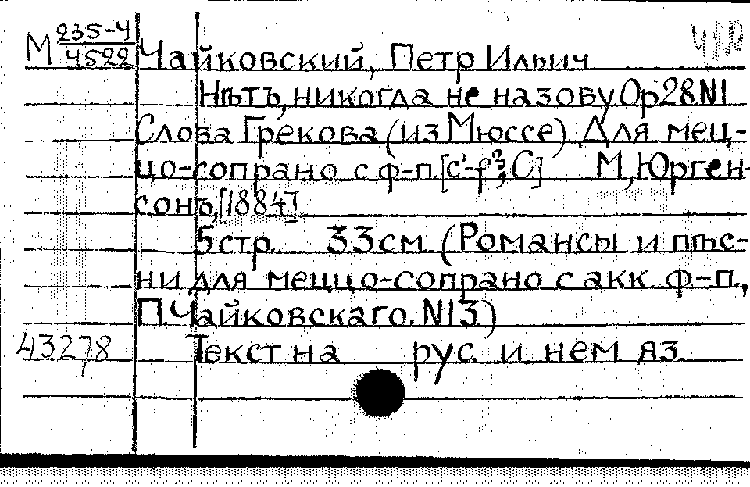 М 235-4/4522 Чайковский, Петр Ильич
Нѣтъ, никогда не назову. Ор 28 №1
Слова Грекова (из Мюссе). Для мец-
цо-сопрано с ф-п. [c¹-f²; C] М, Юрген-
сонъ, [1884].
5 стр. 33 см. (Романсы и пѣс-
ни для меццо-сопрано с акк. ф-п.,
П. Чайковскаго. №13)
43278 Текст на рус. и нем яз.